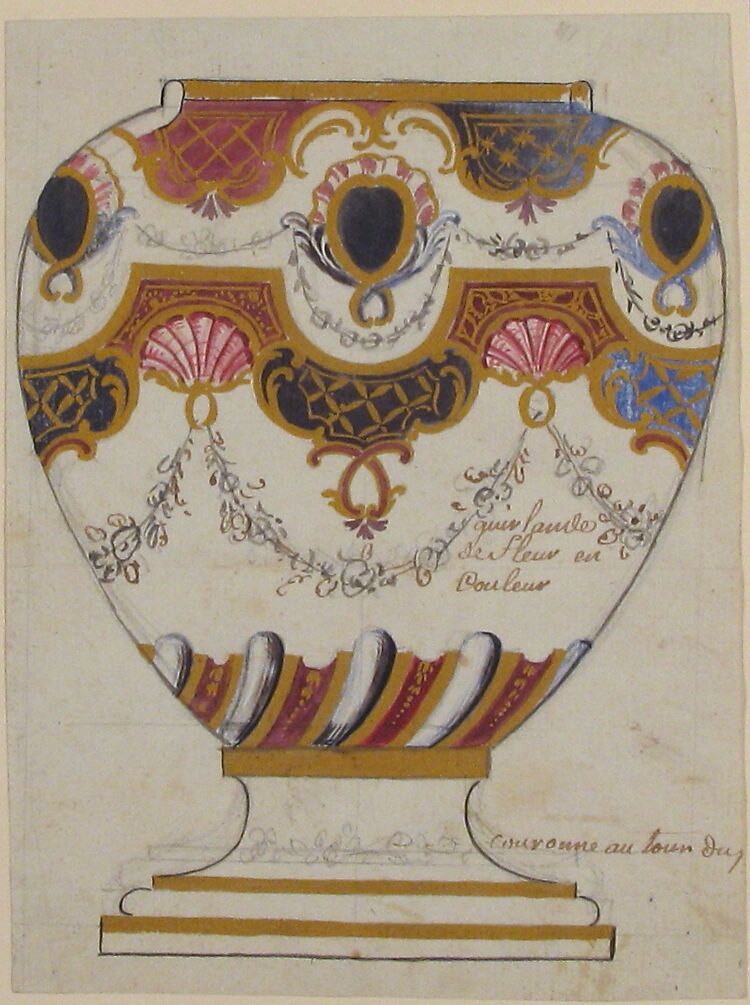 guirlande
de fleur en
Couleur
couronne au tour du